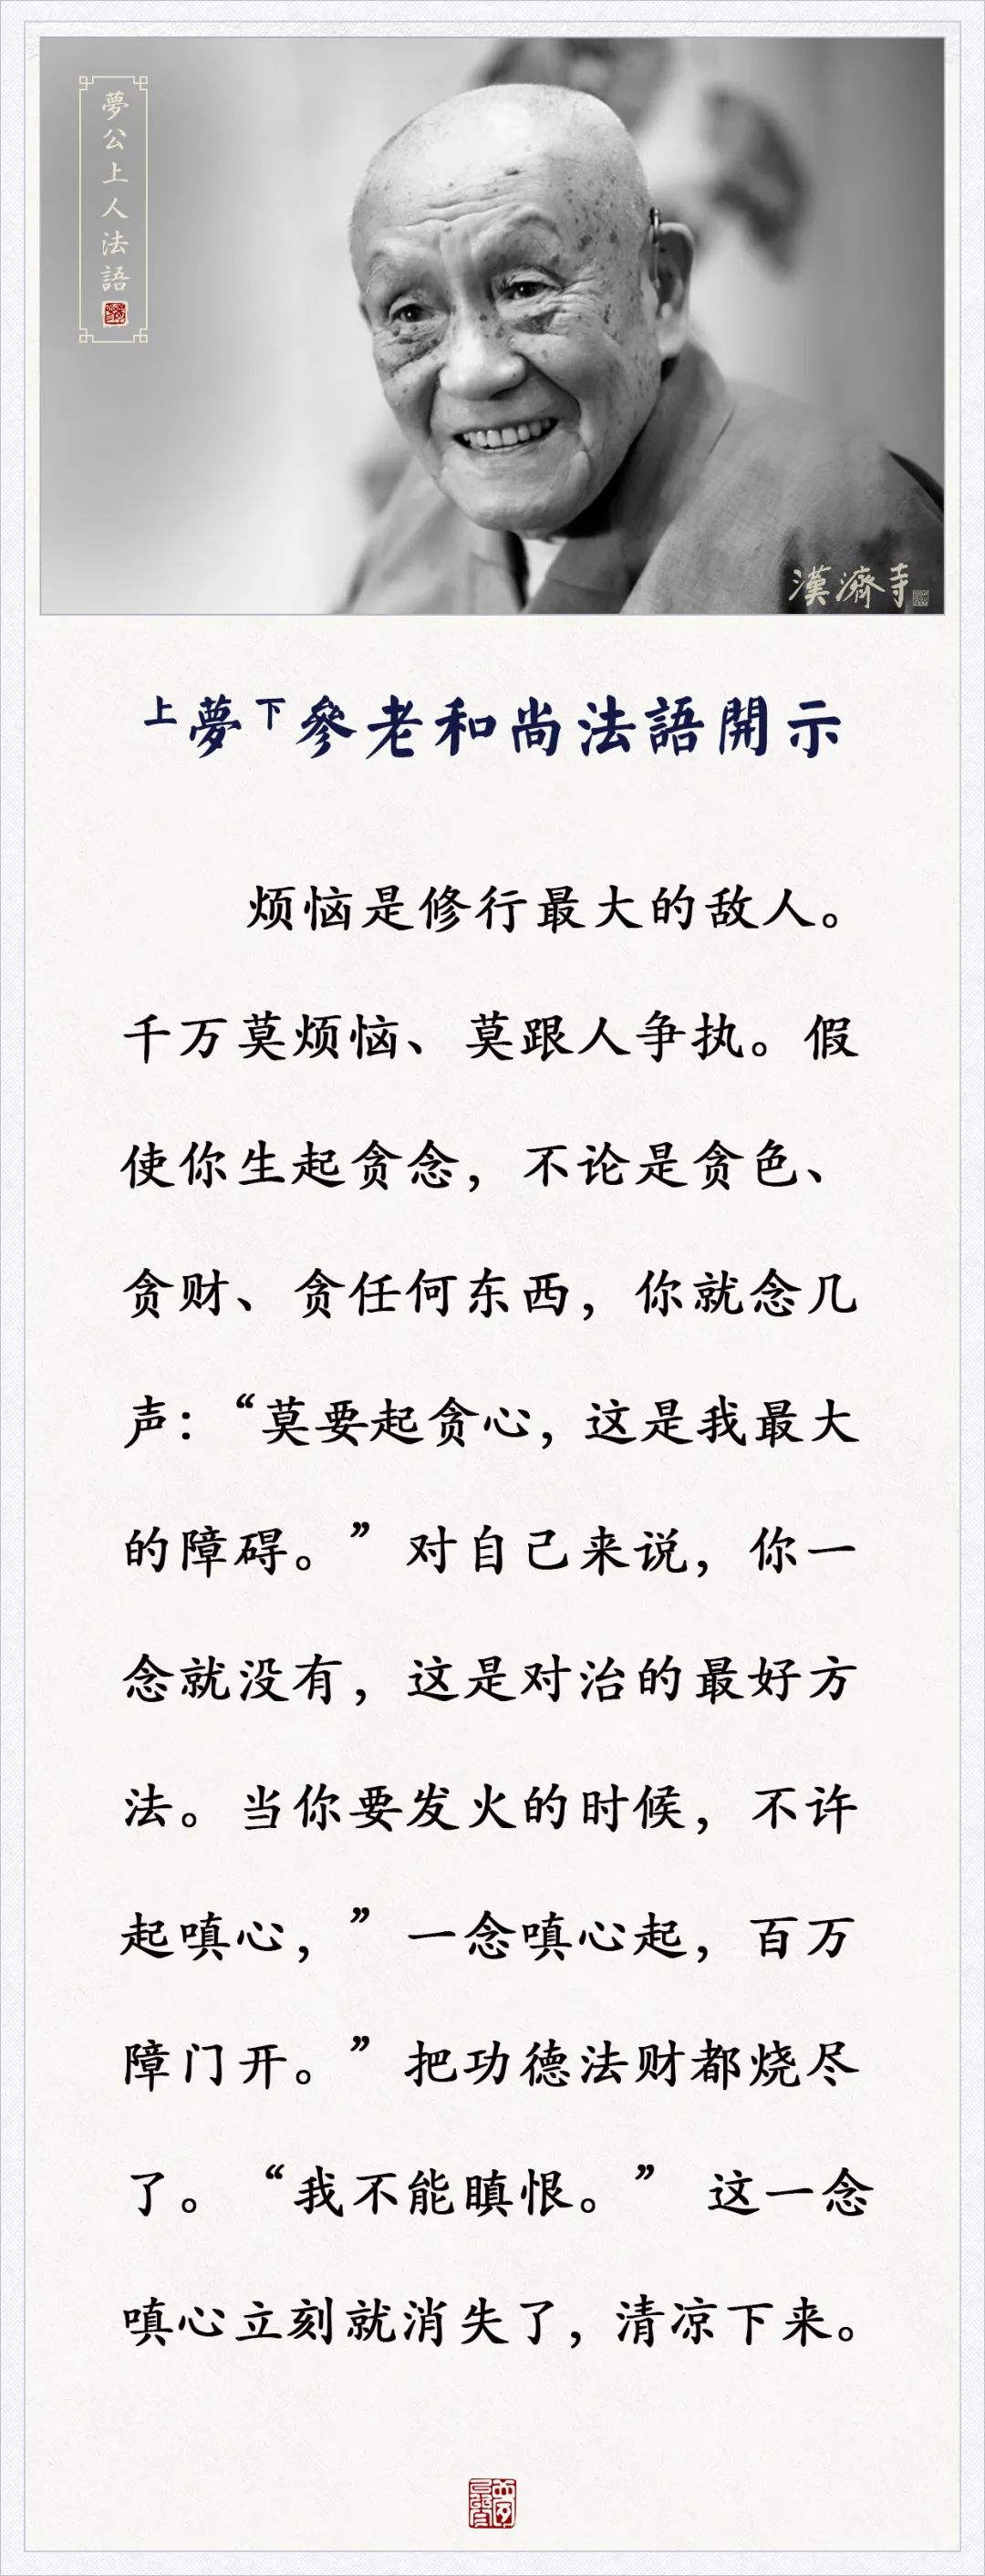 夢公上人法語
漢濟寺
上夢下參老和尚法語開示
烦恼是修行最大的敌人。
千万莫烦恼、莫跟人争执。假
使你生起贪念，不论是贪色、
贪财、贪任何东西，你就念几
声：“莫要起贪心，这是我最大
的障碍。”对自己来说，你一
念就没有，这是对治的最好方
法。当你要发火的时候，不许
起嗔心，”一念嗔心起，百万
障门开。”把功德法财都烧尽
了。“我不能瞋恨。” 这一念
嗔心立刻就消失了，清凉下来。